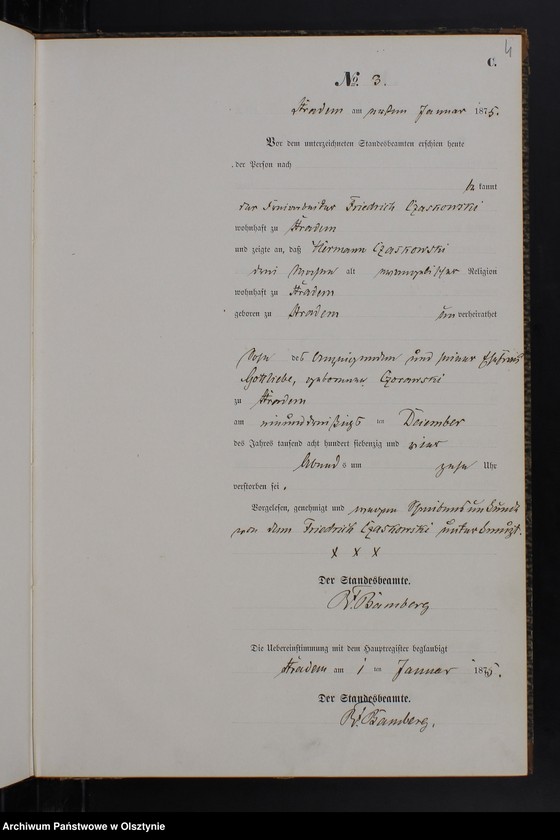 4
C.
No. 3.
Stradem am ersten Januar 1875.
Vor dem unterzeichneten Standesbeamten erschien heute
der Person nach
be kannt
der Friedrich Czaskowski
wohnhaft zu Stradem
und zeigte an, daß Hermann Czaskowski
drei Wochen alt evangelischer Religion
wohnhaft zu Stradem
geboren zu Stradem un verheirathet
Sohn des Anzeigenden und seiner Ehefrau
Gottliebe, geborenen Czarowski
zu Stradem
am einunddreißigs ten Dezember
des Jahres tausend acht hundert siebenzig und vier
Abend s um zehn Uhr
verstorben sei.
Vorgelesen, genehmigt und wegen Schreibensunkunde
von dem Friedrich Czaskowski unterkreuzt.
x x x
Der Standesbeamte.
Bamberg
Die Uebereinstimmung mit dem Hauptregister beglaubigt
Stradem am 1 ten Januar 1875.
Der Standesbeamte.
Bamberg.
Archiwum Państwowe w Olsztynie